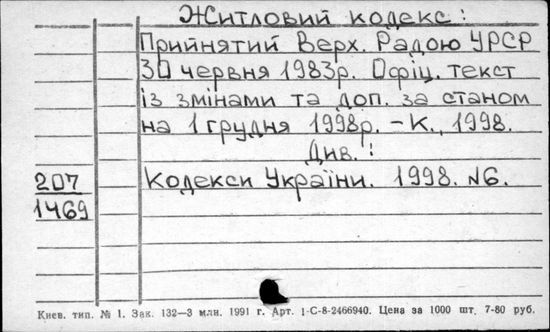 Житловий кодекс:
Прийнятий Верх. Радою УРСР
30 червня 1983р. Офіц. текст
із змінами та доп. за станом
на 1 грудня 1998р. – К., 1998.
Див.:
207
1469
Кодекси України. 1998. №6.
Киев. тип. № 1. Зак. 132—3 млн. 1991 г. Арт. 1-С-8-2466940. Цена за 1000 шт. 7-80 руб.